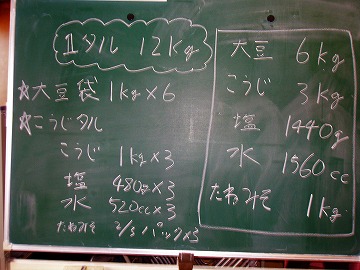 1タル 12kg
☆大豆袋 1kg×6
☆こうじタル
こうじ 1kg×3
塩 480g×3
水 520cc×3
たねみそ 2/3パック×3
大豆 6kg
こうじ 3kg
塩 1440g
水 1560cc
たねみそ 1kg